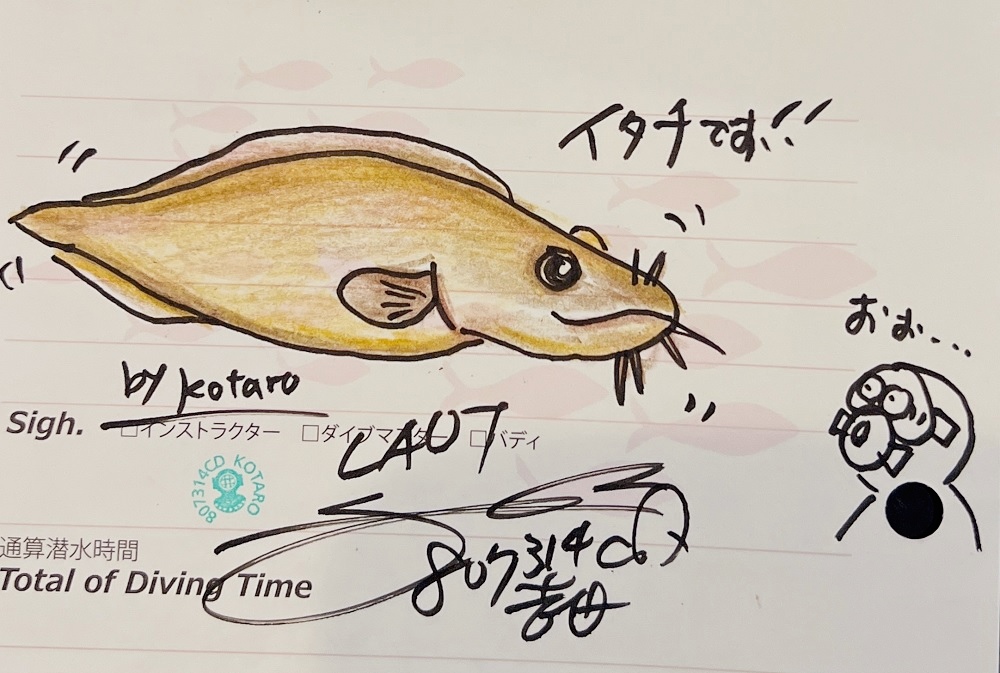 イタチです!!
おぉ...
by kotaro
Sigh. □インストラクター □ダイブマスター □バディ
807314CD KOTARO
通算潜水時間
Total of Diving Time
807314CD